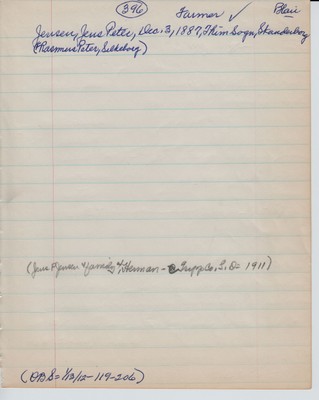 396 Farmer ✓ Blair
Jensen, Jens Peter, Dec. 3, 1887, Thim Sogn, Skanderborg
(Rasmus Peter, Silkeborg)
(Jens P. Jensen & family of Herman - Tripp Co., S. D. 1911)
(OBS = 1/12/12 - 119-206)